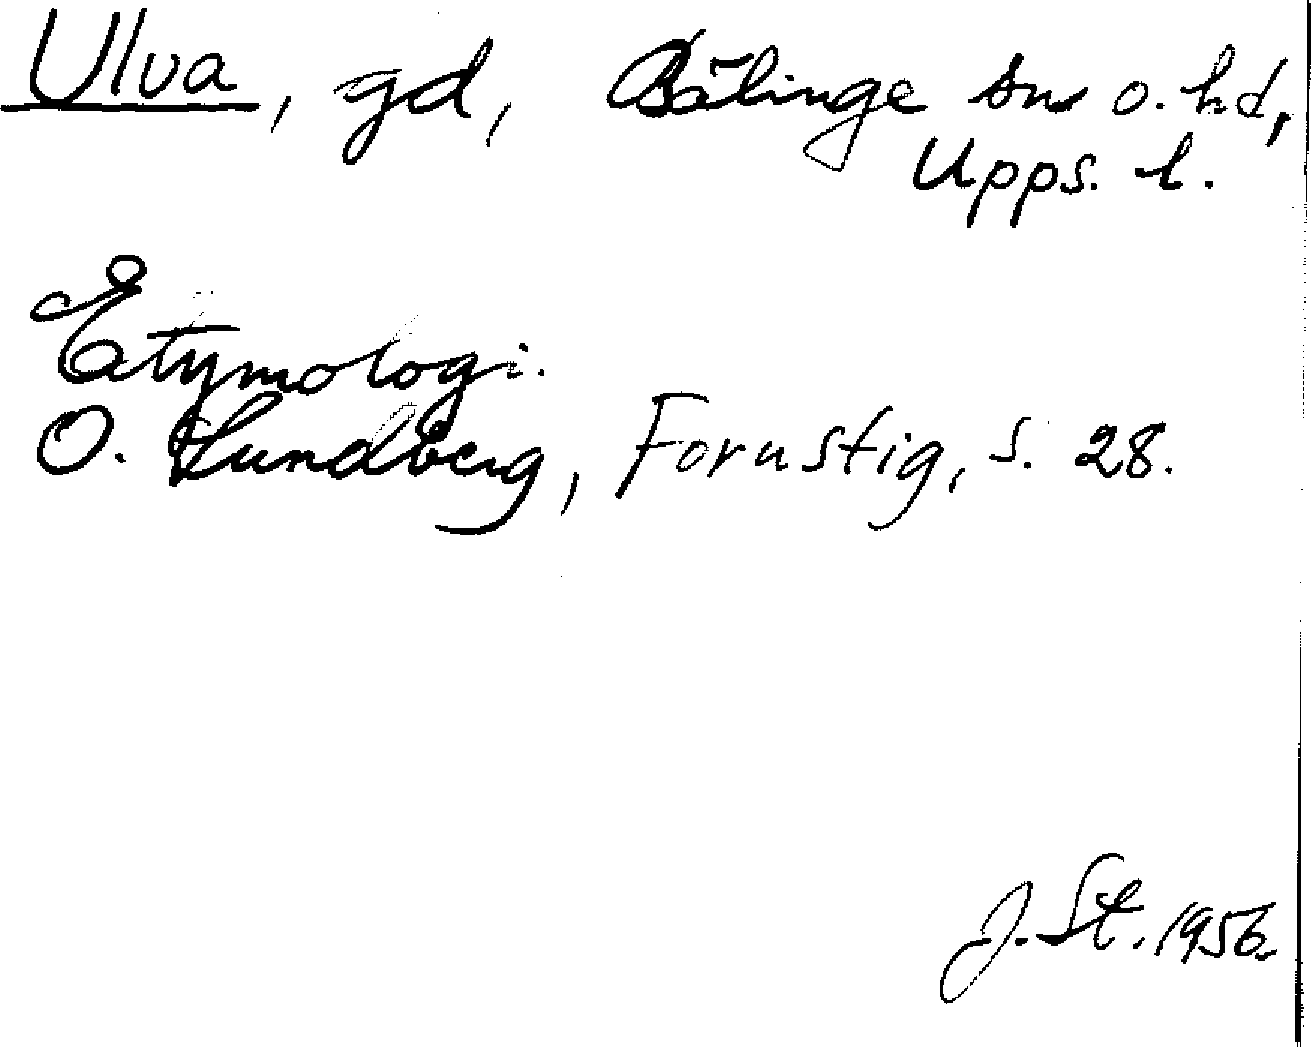 Ulva, gd, Bälinge sn o. hd,
Upps. l.
Etymologi.
O. Lundberg, Fornstig, s. 28.
J. St. 1956.